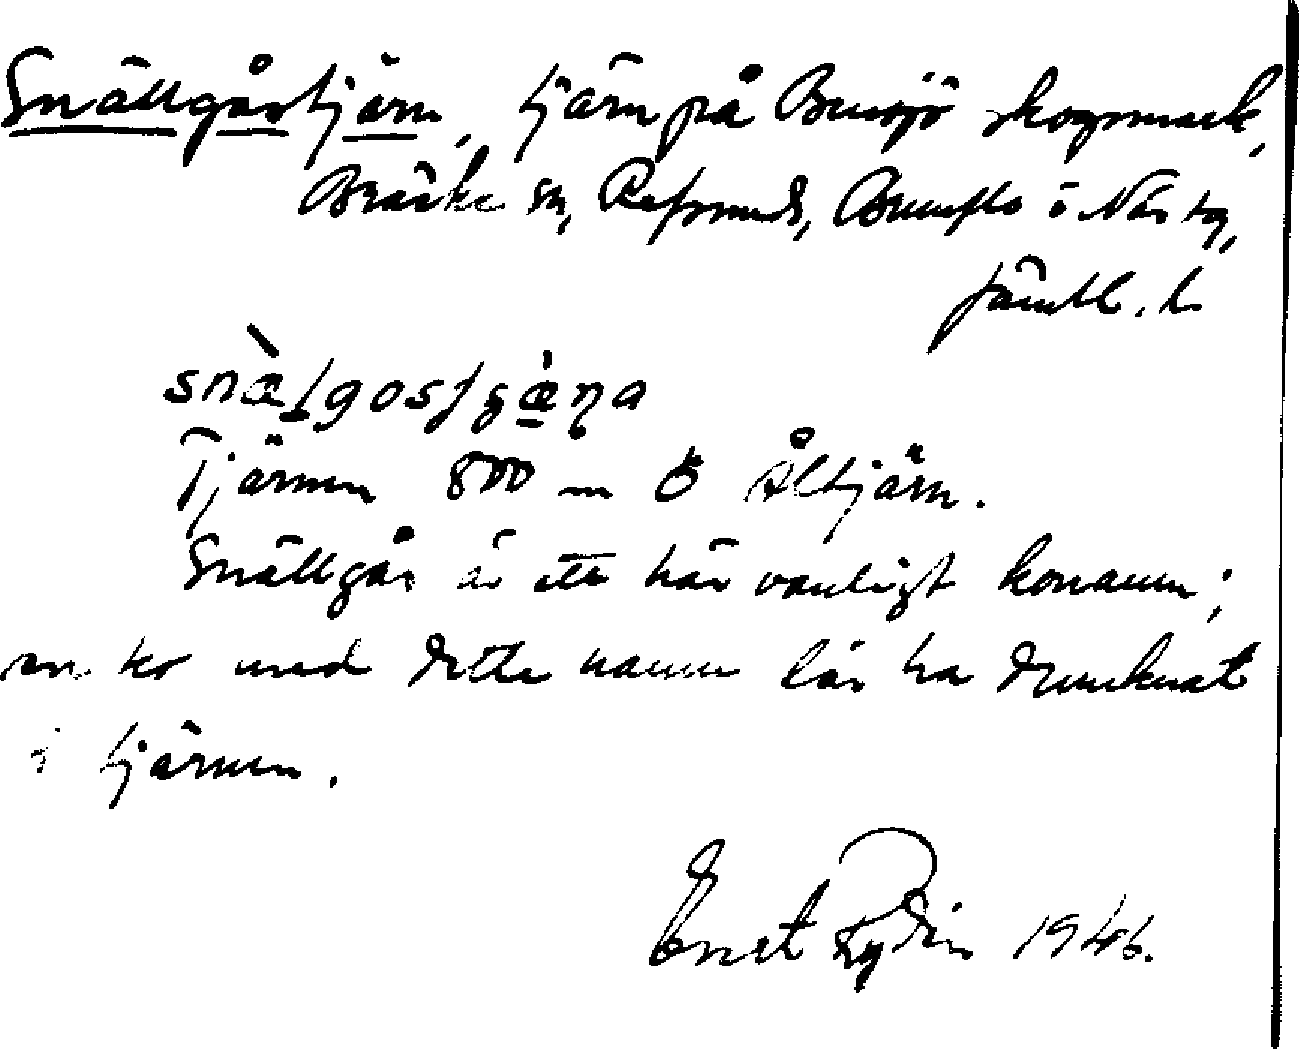 Snällgåstjärn, tjärn på Bensjö skogsmark,
Bräcke sn, Refsunds, Brunflo o Näs tg,
Jämtl. l.
snæ̀lgosʃæ̀ṇa
Tjärnen 800 m Ö Åltjärn.
Snällgås är ett här vanligt konamn;
en ko med detta namn lär ha drunknat
i tjärnen.
Ernst Rydin 1946.